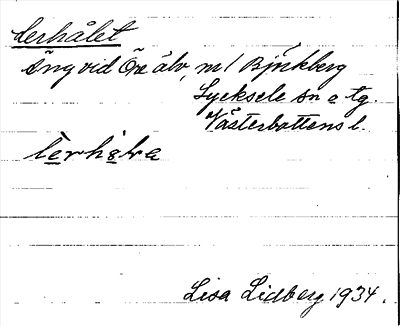 Lerhålet
Äng vid Öre älv, m/ Björkberg
Lycksele sn o tg.
Västerbottens l.
lerhɷlɐ
Lisa Lidberg 1934.